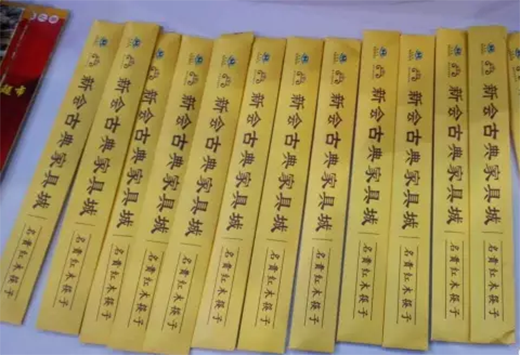 新会古典家具城
名贵红木筷子
新会古典家具城
名贵红木筷子
新会古典家具城
名贵红木筷子
新会古典家具城
名贵红木筷子
新会古典家具城
名贵红木筷子
新会古典家具城
名贵红木筷子
新会古典家具城
名贵红木筷子
新会古典家具城
名贵红木筷子
新会古典家具城
名贵红木筷子
新会古典家具城
名贵红木筷子
新会古典家具城
名贵红木筷子
新会古典家具城
名贵红木筷子